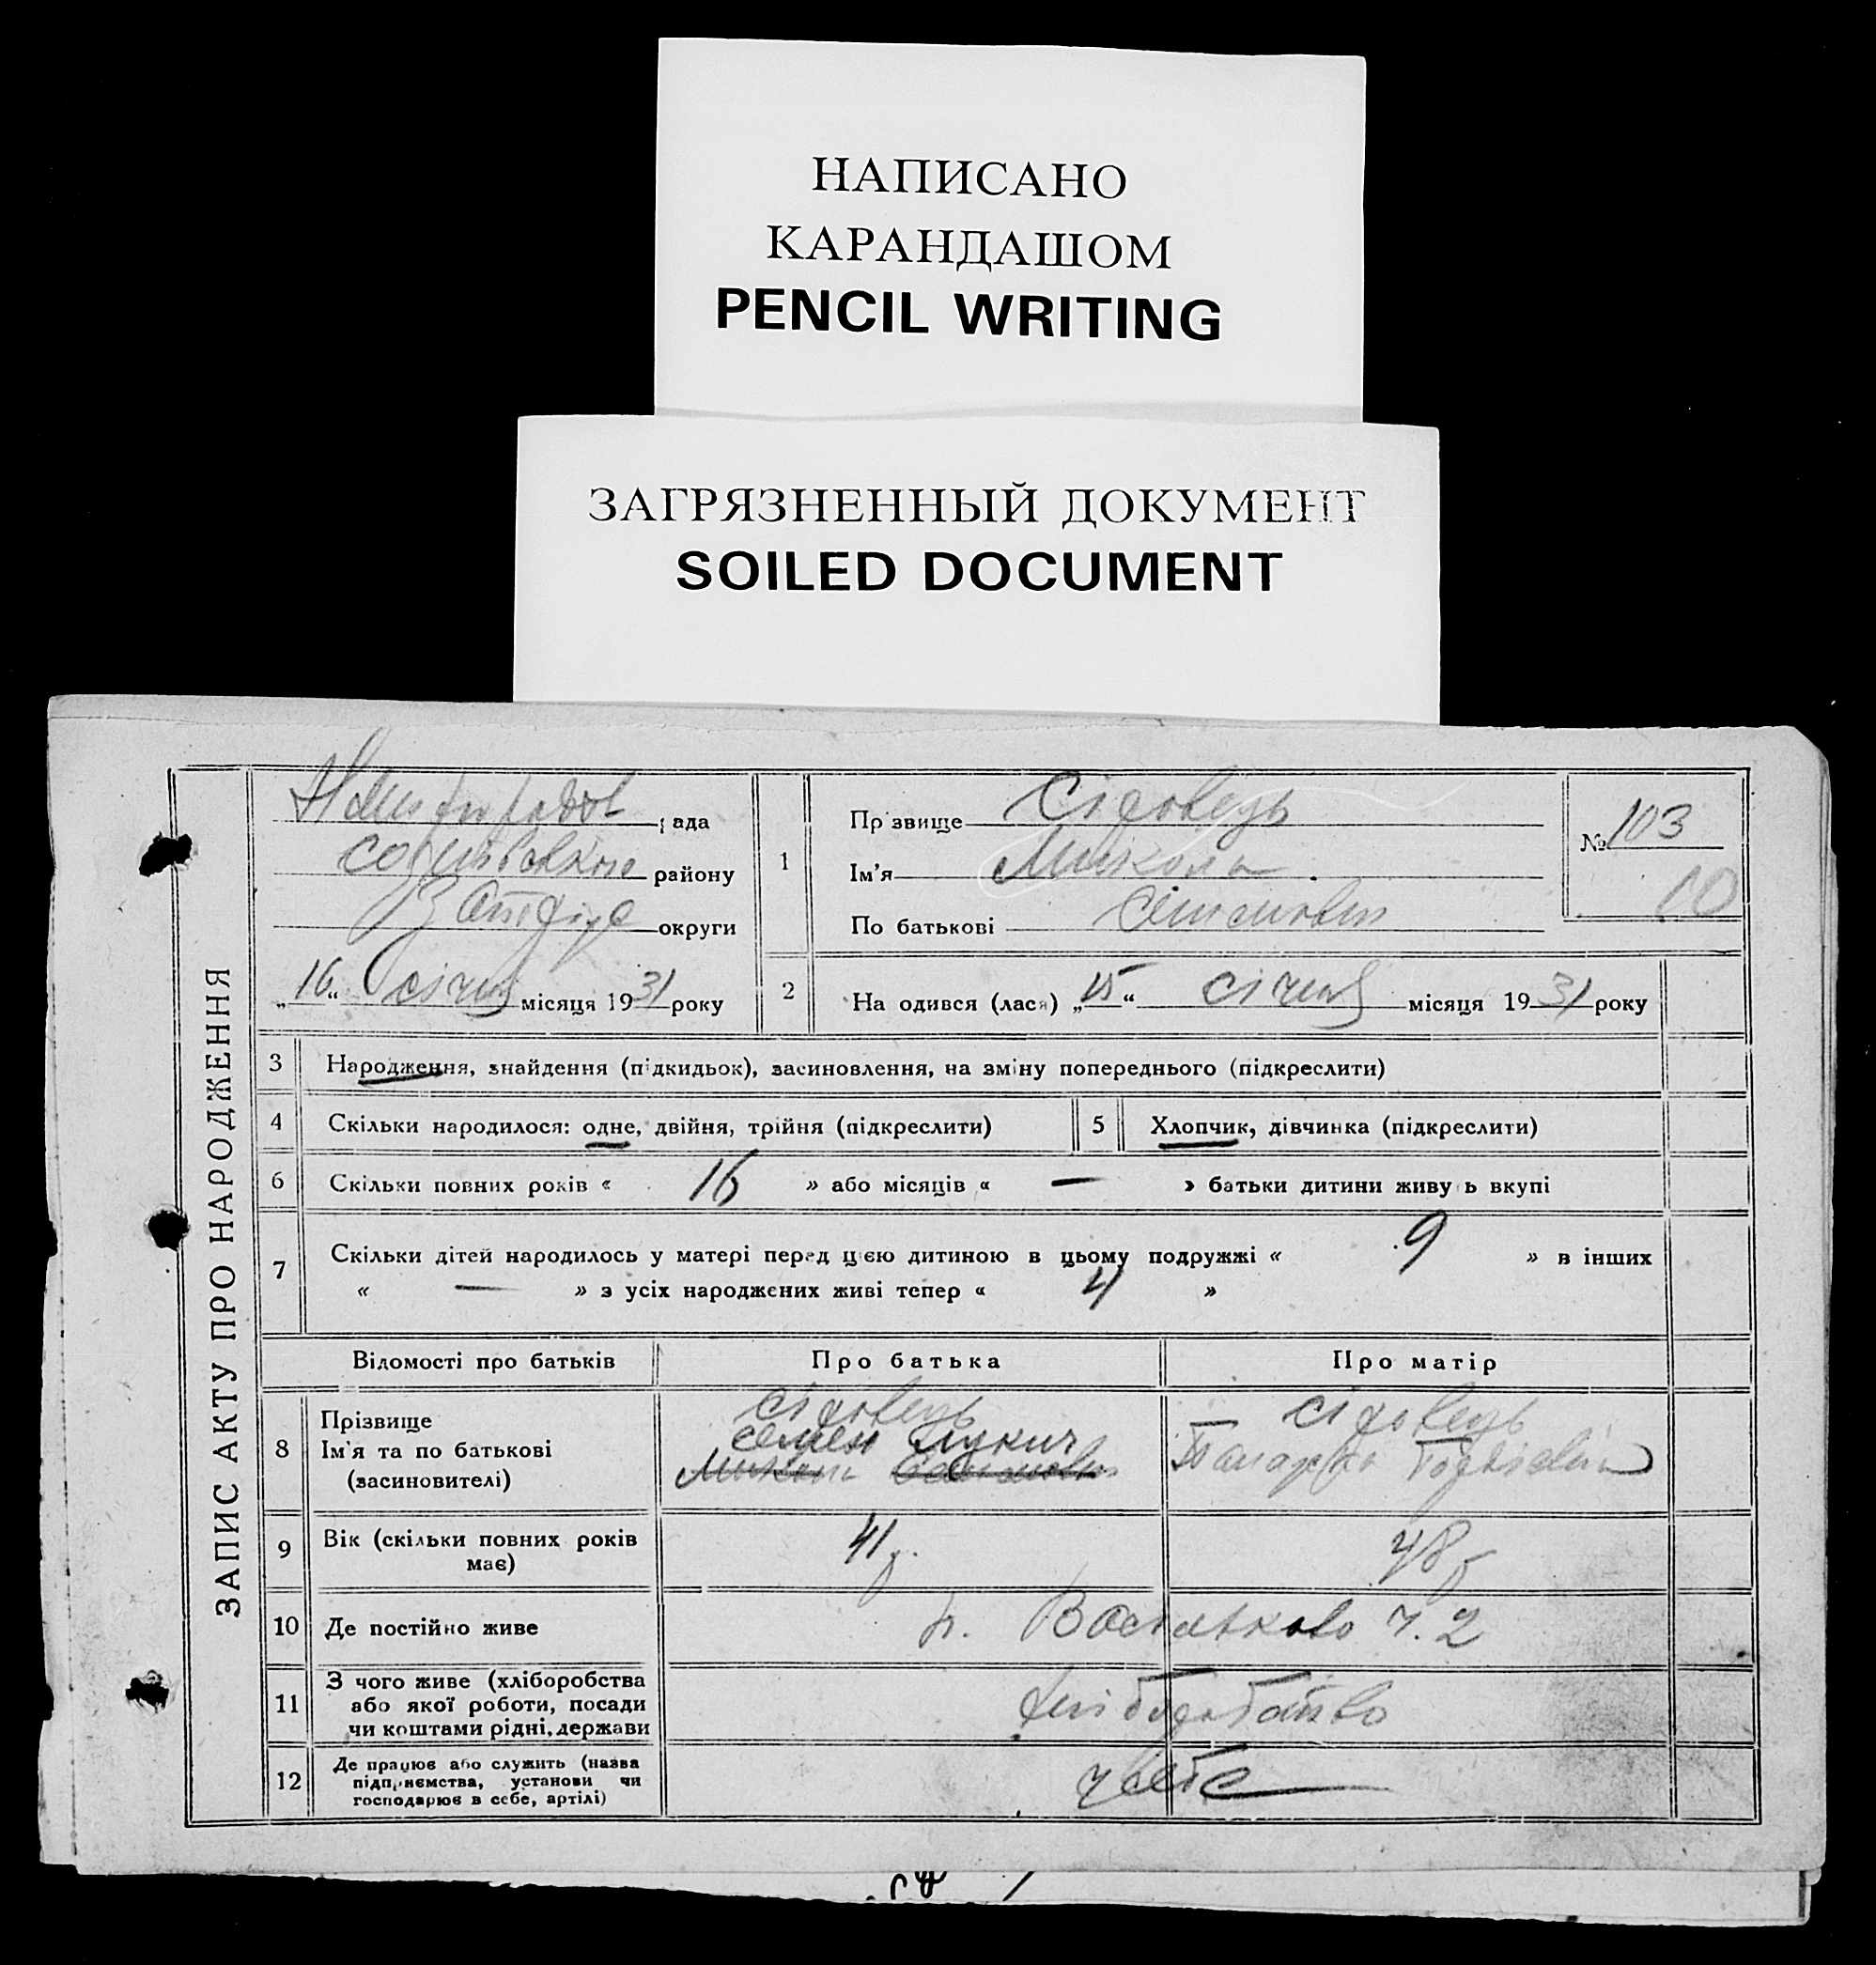 НАПИСАНО
КАРАНДАШОМ
PENCIL WRITING
ЗАГРЯЗНЕННЫЙ ДОКУМЕНТ
SOILED DOCUMENT
ЗАПИС АКТУ ПРО НАРОДЖЕННЯ
рада
району
округи
„16“ січня місяця 1931 року
1
Прізвище Сідовець
Ім'я Микола
По батькові Семенович
№ 103
10
2 Народився (лася) „15“ січня місяця 1931 року
3 Народження, знайдення (підкидьок), засиновлення, на зміну попереднього (підкреслити)
4 Скільки народилося: одне, двійня, трійня (підкреслити)
5 Хлопчик, дівчинка (підкреслити)
6 Скільки повних років « 16 » або місяців « — » батьки дитини живуть вкупі
7 Скільки дітей народилось у матері перед цією дитиною в цьому подружжі « 9 » в інших
« — » з усіх народжених живі тепер « 4 »
Відомості про батьків Про батька Про матір
8 Прізвище
Ім'я та по батькові
(засиновителі)
Сідовець
Семен Лукич
Микола Семенович
Сідовець
9 Вік (скільки повних років
має)
41р. 48р
10 Де постійно живе
Васильково ч. 2
11 З чого живе (хліборобства
або якої роботи, посади
чи коштами рідні, держави
хліборобство
12 Де працює або служить (назва
підприємства, установи чи
господарює в себе, артілі)
у себе